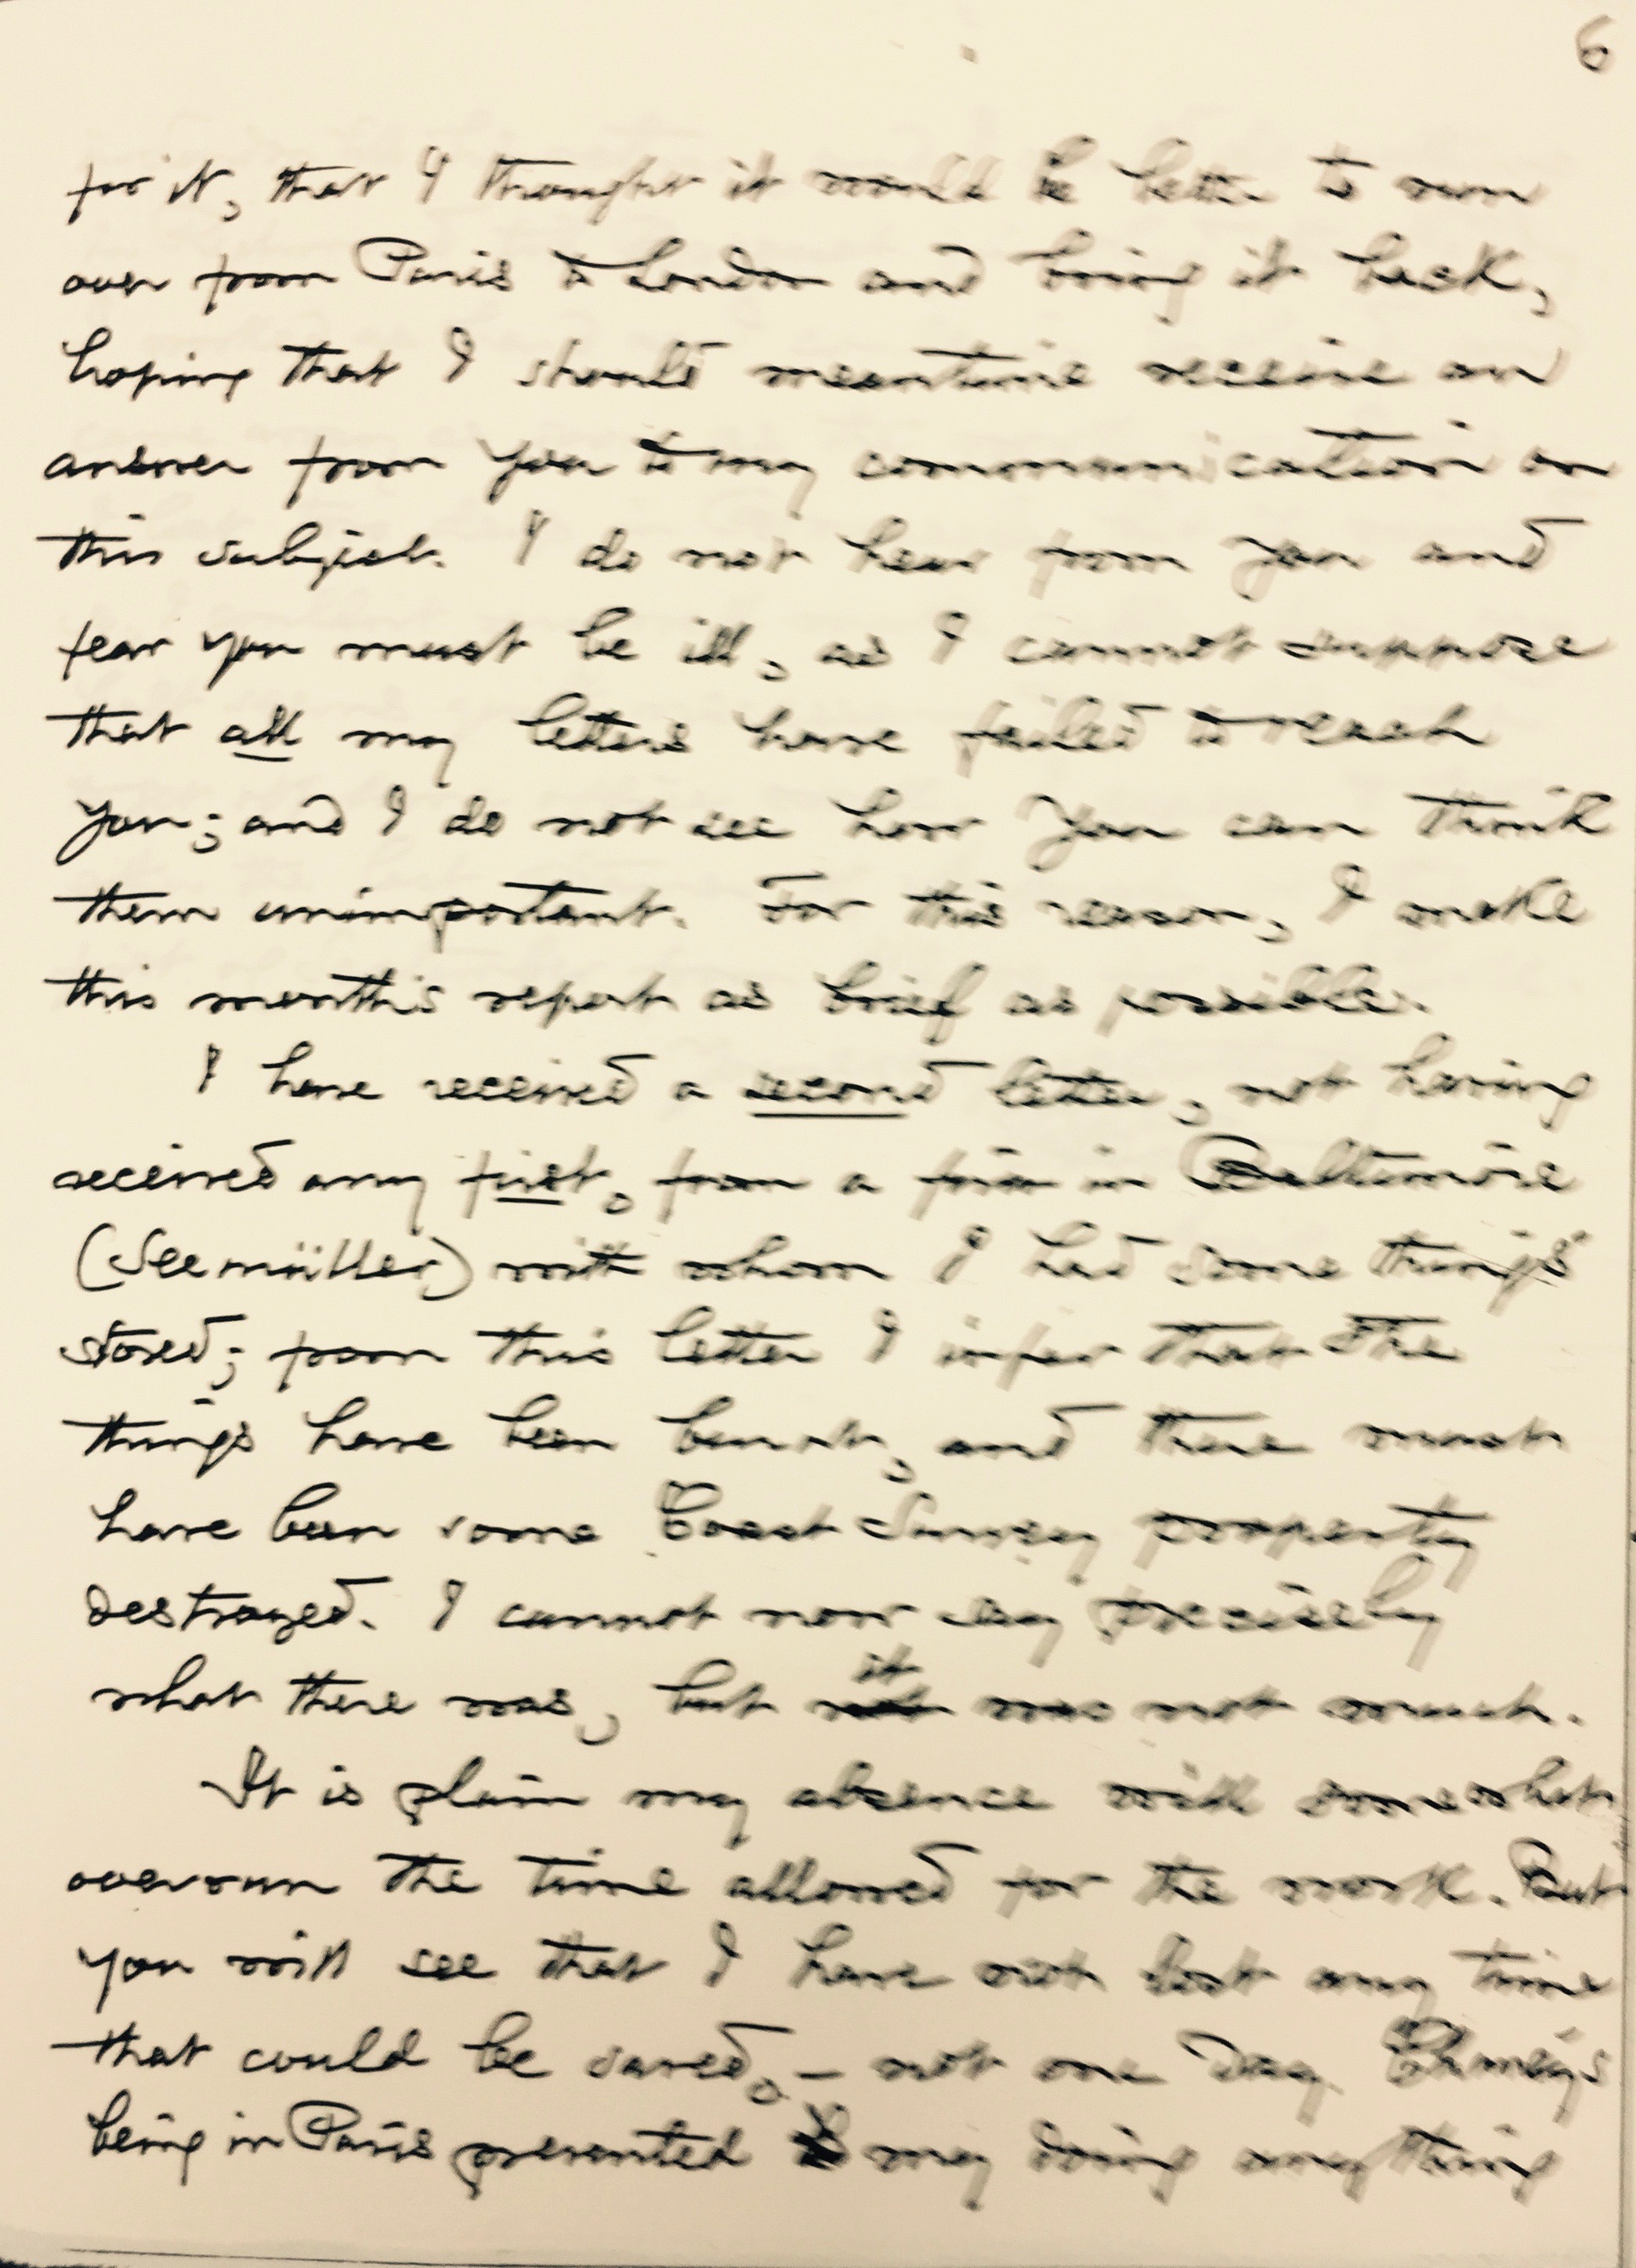 6
for it, that I thought it would be better to run
over from Paris to London and bring it back,
hoping that I should meantime receive an
answer from you to my communication on
this subject. I do not hear from you and
fear you must be ill, as I cannot suppose
that all my letters have failed to reach
you; and I do not see how you can think
them unimportant. For this reason, I make
this month's report as brief as possible.
I have received a second letter, not having
received any first, from a firm in Baltimore
(Seemüller) with whom I had some things
stored; from this letter I infer that the
things have been burnt, and there must
have been some Coast Survey property
destroyed. I cannot now say precisely
what there was, but it was not much.
It is plain my absence will somewhat
overrun the time allowed for the work. But
you will see that I have not lost any time
that could be saved, — not one day.
being in Paris prevented my doing anything